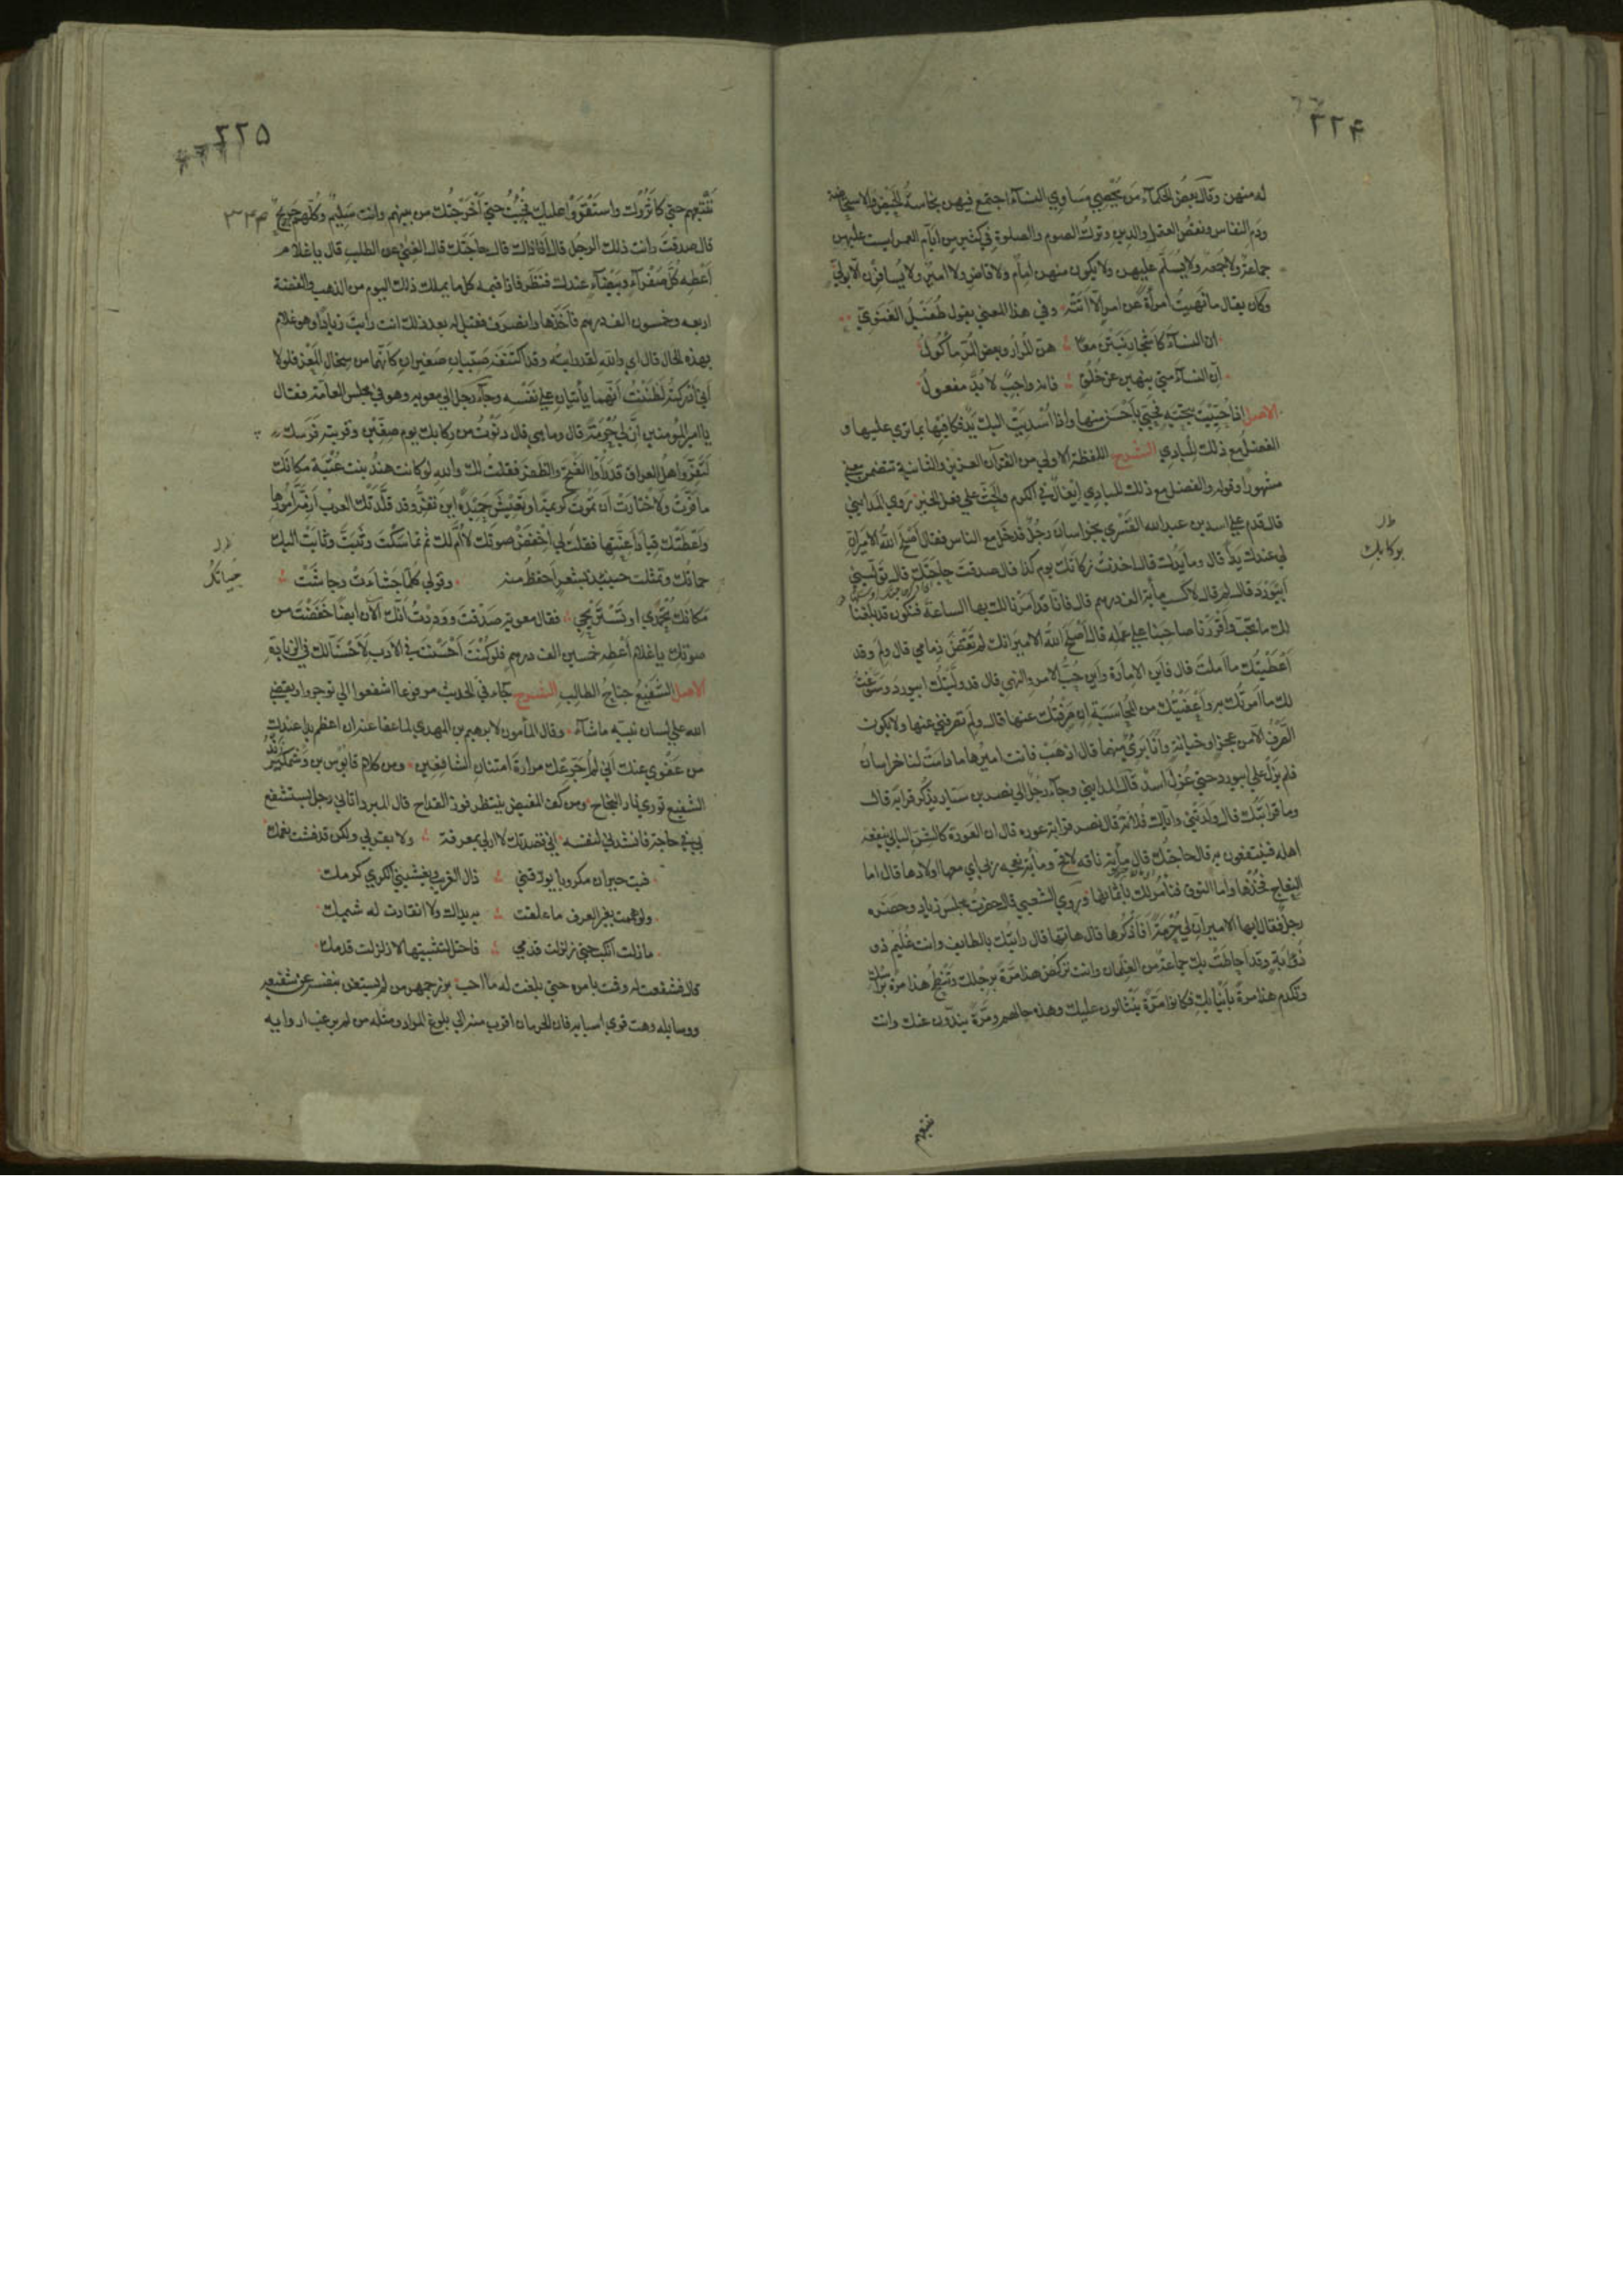 ٢٢۴
له منهن وقال بعض الحكمآء من يحصي مساوي النسآء اجتمع فيهن نجاسة الحيض والاستحاضة
ودم النفاس ونقص العقل والدين وترك الصوم والصلوة في كثير من ايام العمر ليست عليهن
جماعة ولا جمعة ولا يسلم عليهن ولا يكون منهن امام ولا قاض ولا امير ولا يسافرن الا بولي
وكان يقال ما نهيت امرأة عن امر الا اتته وفي هذا المعني يقول طفيل الغنوي
ان النسآء كاشجار نبتن معا هن المرار وبعض المر مأكول
ان النسآء متي ينهين عن خلق فانه واجب لا بد مفعول
الاصل اذا حييت بتحية فحي باحسن منها واذا اسديت اليك يد فكافئها بما تربي عليها و
الفضل مع ذلك للبادي الشرح اللفظة الاولي من القرآن العزيز والثانية تتضمن معني
مشهورا وقوله والفضل مع ذلك للبادي في الكرم والحث علي فعل الخير روي المدايني
قال قدم علي اسد بن عبد الله القسري بخراسان رجل فدخل مع الناس فقال اصلح الله الامير ان
لي عندك يدا قال وما يدك قال اخذت بركابك يوم كذا قال صدقت حاجتك قال توليني
ابيورد قال لم قال لاكسب مأية الف درهم قال فانا قد امرنا لك بها الساعة فنكون قد بلغنا
لك ما تحب واقررنا صاحبنا علي عمله قال اصلح الله الامير انك لم تقض ذمامي قال ولم وقد
اعطيتك ما املت قال فاين الامارة واين حب الامر والنهي قال قد وليتك ابيورد وسوغت
لك ما امرتك به واعفيتك من المحاسبة ان صرفتك عنها قال ولم تصرفني عنها ولا يكون
الصرف الا من عجز او خيانة وانا بري منهما قال اذهب فانت اميرها ما دامت لنا خراسان
فلم يزل علي ابيورد حتي عزل اسد قال المدايني وجآء رجل الي نصر بن سيار يذكر قرابة قال
وما قرابتك قال ولدتني واياك فلانة قال نصر قرابة عورة قال ان العورة كالشن البالي يرقعه
اهله فينتفعون به قال حاجتك قال مأية ناقة لاقح ومأية نعجة ربي اي معها اولادها قال اما
النعاج فخذها واما النوق فنأمر لك باثمانها وروي الشعبي قال حضرت مجلس زياد وحضره
رجل فقال ايها الامير ان لي حرمة افاذكرها قال هاتها قال رايتك بالطايف وانت غليم ذو
ذؤابة وقد احاطت بك جماعة من الغلمان وانت تركض هذا مرة برجلك وتنطح هذا مرة براسك
وتكدم هذا مرة بانيابك فكانوا مرة ينثالون عليك وهذه حالهم ومرة يندون عنك وانت
ظ
بركابك
تتبعهم
٢٢٥
تتبعهم حتي كاثروك واستقووا عليك فجئت حتي اخرجتك من بينهم وانت سليم وكلهم جريح
قال صدقت وانت ذلك الرجل قال انا ذاك قال حاجتك قال الغني عن الطلب قال يا غلام
اعطه كل صفرآء وبيضآء عندك فنظر فاذا قيمة كل ما يملك ذلك اليوم من الذهب والفضة
اربعة وخمسون الف درهم فاخذها وانصرف فقيل له بعد ذلك انت رايت زيادا وهو غلام
بهذه الحال قال اي والله لقد رايته وقد اكتنفه صبيان صغيران كانهما من سخال المعز فلولا
اني ادركته لظننت انهما يأتيان علي نفسه وجآء رجل الي معوية وهو في مجلس العامة فقال
يا امير المؤمنين ان لي حرمة قال وما هي قال دنوت من ركابك يوم صفين وقد قربت فرسك
لتفر واهل العراق قد راوا الفتح والظفر فقلت لك والله لو كانت هند بنت عتبة مكانك
ما فرت ولاختارت ان تموت كريمة او تعيش حميدة اين تفر وقد قلدتك العرب ازمة امورها
واعطتك قياد اعنتها فقلت لي اخفض صوتك لا ام لك ثم تماسكت وثبت وثابت اليك
حماتك وتمثلت حينئذ بشعر احفظ منه وقولي كلما جشأت وجاشت
مكانك تحمدي او تستريحي فقال معوية صدقت ووددت انك الآن ايضا خفضت من
صوتك يا غلام اعطه خمسين الف درهم فلو كنت احسنت في الادب لاحسنا لك في الزيادة
الاصل الشفيع جناح الطالب الشرح جآء في الحديث مرفوعا اشفعوا الي توجروا ويقضي
الله علي لسان نبيه ما شآء وقال المأمون لابرهيم بن المهدي لما عفا عنه ان اعظم يدا عندك
من عفوي عنك اني لم اجرعك مرارة امتنان الشافعين ومن كلام قابوس بن وشمكير بزند
الشفيع توري نار النجاح ومن كف المفيض ينتظر فوز القداح قال المبرد اتاني رجل يستشفع
بي في حاجة فانشدني لنفسه اني قصدتك لا ادلي بمعرفة ولا بقربي ولكن قد فشت نعمك
فبت حيران مكروبا يؤرقني ذل الغريب ويغشيني الكري كرمك
ولو هممت بغير العرف ما علقت به يداك ولا انقادت له شيمك
ما زلت انكب حتي زلزلت قدمي فاحتل لتثبيتها لا زلزلت قدمك
قال فشفعت له وقمت بامره حتي بلغت له ما احب بزرجمهر من لم يستغن بنفسه عن شفيعه
ووسايله وهت قوي اسبابه وكان الي الحرمان اقرب منه الي بلوغ المراد ومثله من لم يرغب اوداؤه
ظ